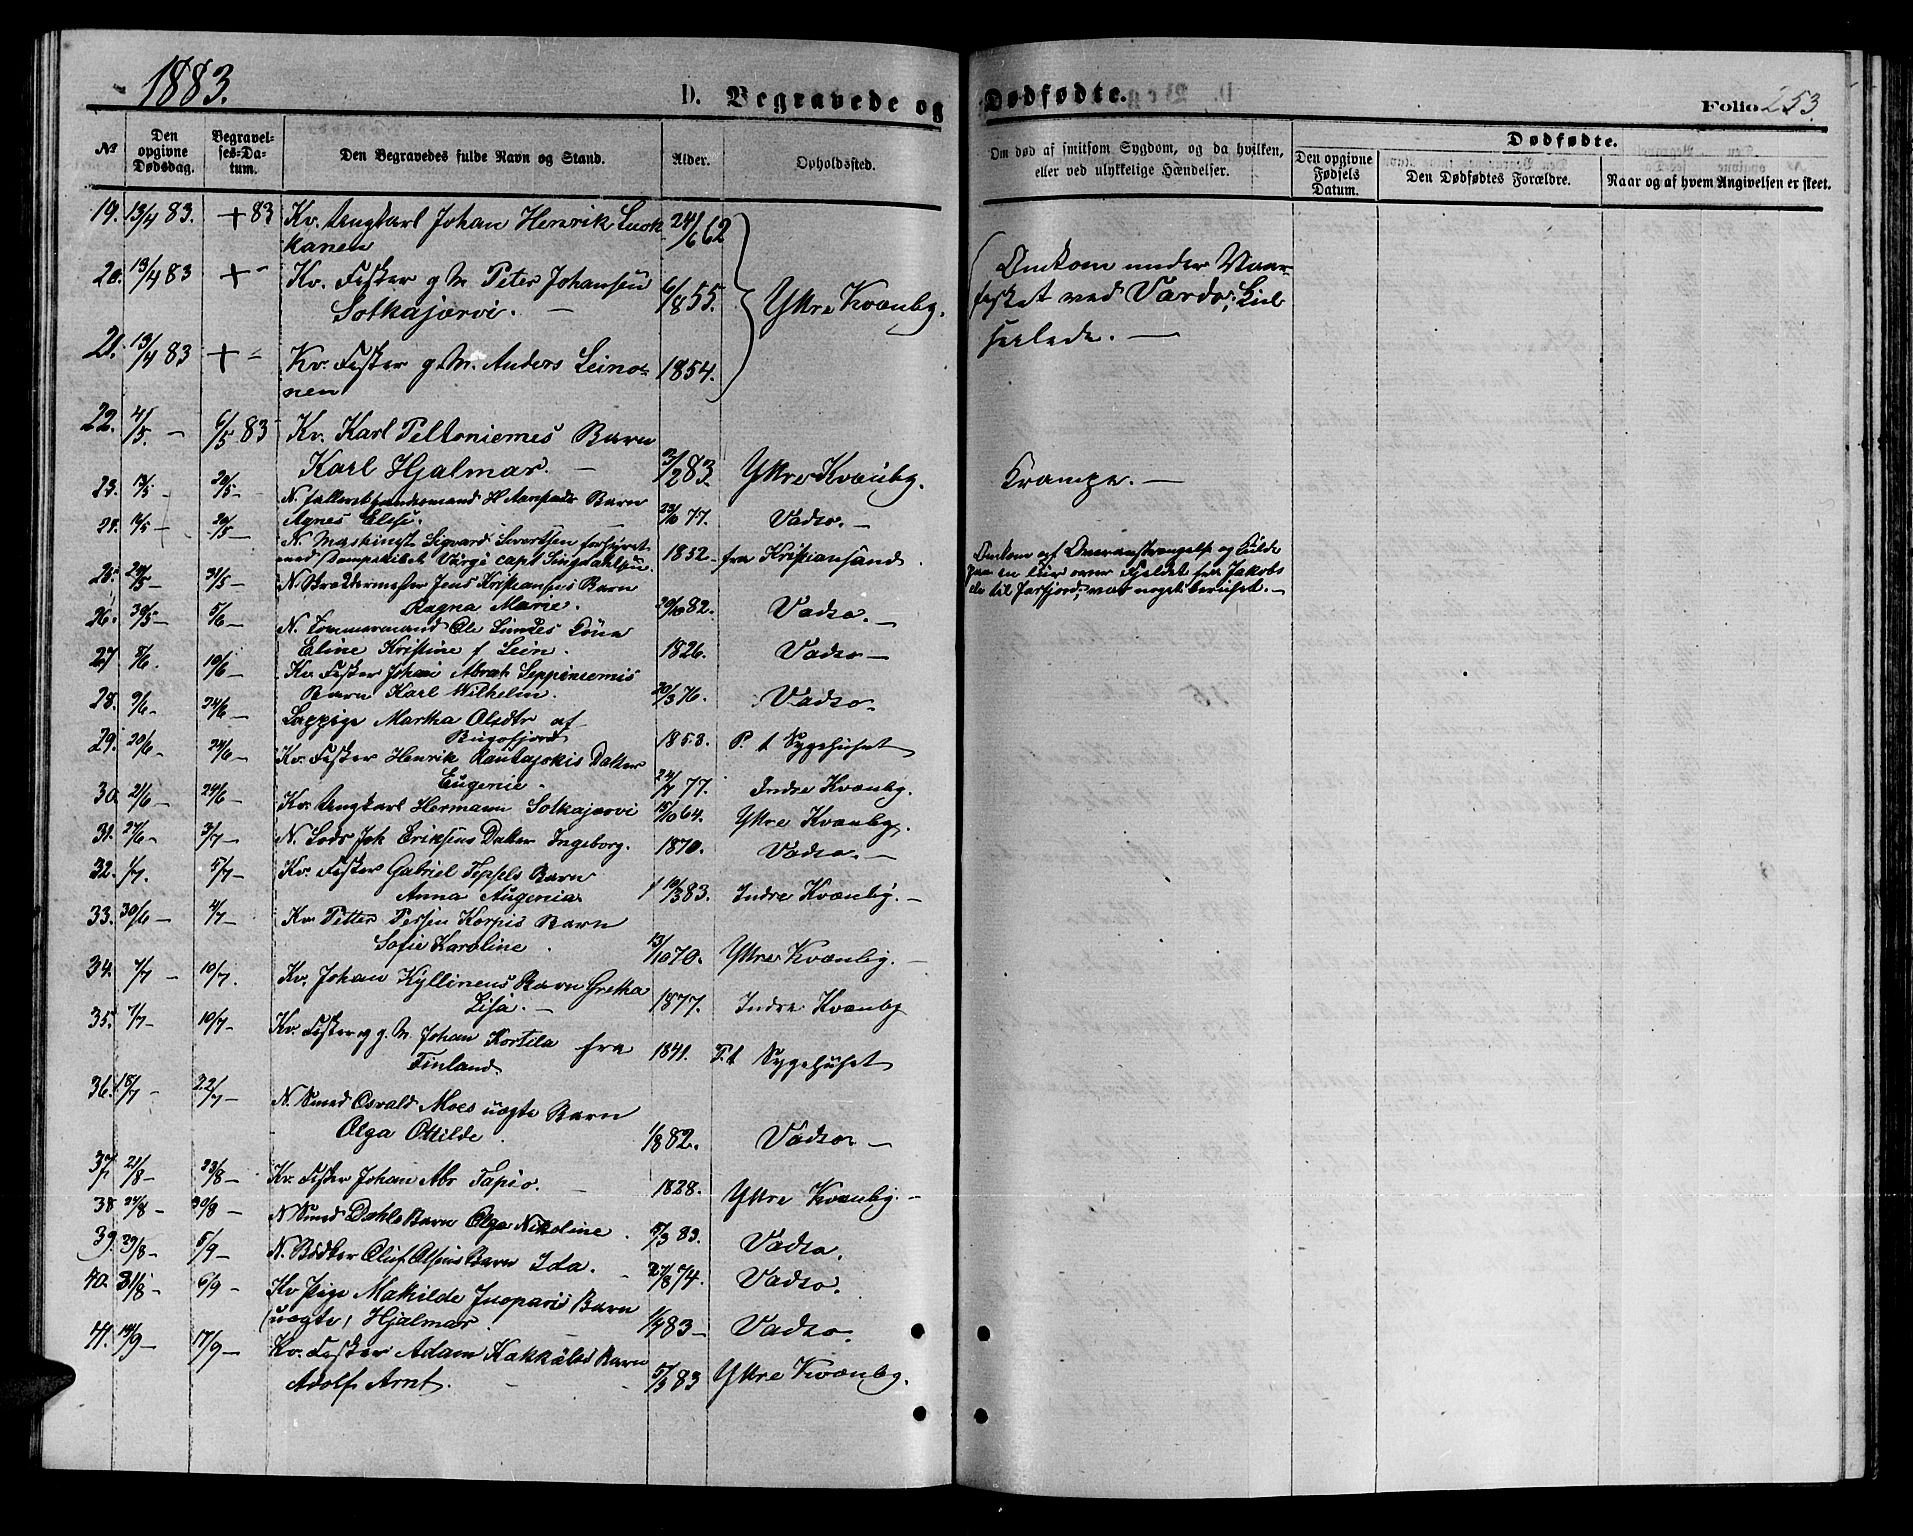 1883.
D. Begravede og Dødfødte.
Folio 253.
No
Den opgivne Dødsdag.
Begravelses-Datum.
Den Begravedes fulde Navn og Stand.
Alder.
Opholdssted.
Om død af smitsom Sygdom, og da hvilken, eller ved ulykkelige Hændelser.
Dødfødte.
Den opgivne Fødsels Datum.
Den Dødfødtes Forældre.
Naar og af hvem Angivelsen er skeet.
19. 13/4 83. + 83 Kv. Ungkarl Johan Henrik Luok 24/6 62
kanen
20. 13/4 83 + - Kv. Fisker g M Peter Johansen 6/8 55. Yttre Kvænby. Omkom under Vaar-
Sotkajærvi. - fisket ved Vardø,
21. 13/4 83 + - Kv. Fisker g M. Anders Leino- 1854. seilede. -
nen
22. 4/5. - 6/5 83 Kv. Karl Peltoniemes Barn
Karl Hjalmar. - 3/2 83. Yttre Kvænby. Krampe. -
23. 13/5 - 20/5 - N. Barn
Agnes Elise. 23/10 77. Vadsø. -
24. 16/5 - 20/5 - N. Maskinist Sigvard Sivertsen forhyret
med Dampskibet Værge capt 1852 - fra Kristiansand. Omkom af Overanstrængelse og Kulde
25. 28/5 - 31/5 - N. Skræddermester Jens Kristiansens Barn paa en tur over Fjeldet fra Jakobs
Ragna Marie. 20/10 82. Vadsø. - elv til Jarfjord; var noget beruset. -
26. 30/5 - 5/6 - N. Tømmermand Ole Kone
Eline Kristine f Lein. 1826. Vadsø -
27 5/6. 10/6 - Kv. Fisker Johan Abrah Seppiniemis
Barn Karl Wilhelm. 20/3 76. Vadsø.
28. 9/6 - 24/6 - Lappige Martha Olsdtr af
Bugøfjord 1853. P. t Sygehuset
29. 20/6 - 24/6 - Kv. Fisker Henrik Rantajokis Datter
Eugenie. 24/7 77. Indre Kvænby.
30. 21/6 - 24/6 - Kv. Ungkarl Hermann Sotkajærvi 15/10 64. Yttre Kvænby.
31. 27/6 - 3/7 - N. Lods Joh Eriksens Datter Ingeborg. 1870. Vadsø. -
32. 1/7. 5/7 - Kv. Fisker Gabriel Barn
Anna Augenia 10/3 83. Indre Kvænby. -
33. 30/6 - 4/7 - Kv. Petter Persen Korpis Barn
Sofie Karoline. 13/10 70. Yttre Kvænby. -
34. 7/7 - 10/7. Kv. Johan Kyllinens Barn Gretha
Lisa. - 1877. Indre Kvænby
35. 7/7 - 10/7 - Kv. Fisker og g. M. Johan Kortila fra 1841. P.t Sygehuset
Finland.
36. 18/7 - 22/7 - N. Smed Osvald Moes uægte Barn
Olga Ottilde. 1/8 82. Vadsø -
37. 21/8 - 23/8 - Kv. Fisker Johan Abr Tapio. - 1828. Yttre Kvænby. -
38. 24/8 - 30/8 - N Smed Dahls Barn Olga Nikoline. 5/3 83. Vadsø.
39. 29/8 - 5/9 - N. Bødker Oluf Olsens Barn Ida. - 27/8 74. Vadsø.
40. 31/8 - 6/9 - Kv Pige Mathilde Barn
(uægte) Hjalmar. 1/7 83 - Vadsø.
41. 14/9 - 17/9 - Kv. Fisker Adam Barn
Adolf Arnt. - 5/3 83 Yttre Kvænby.